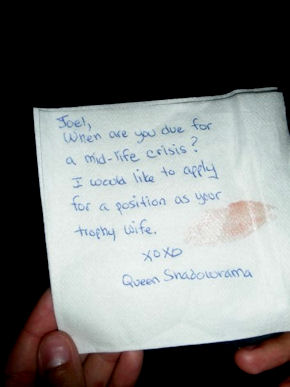 Joel,
When are you due for
a mid-life crisis?
I would like to apply
for a position as your
trophy wife.
XOXO
Queen Shadowrama